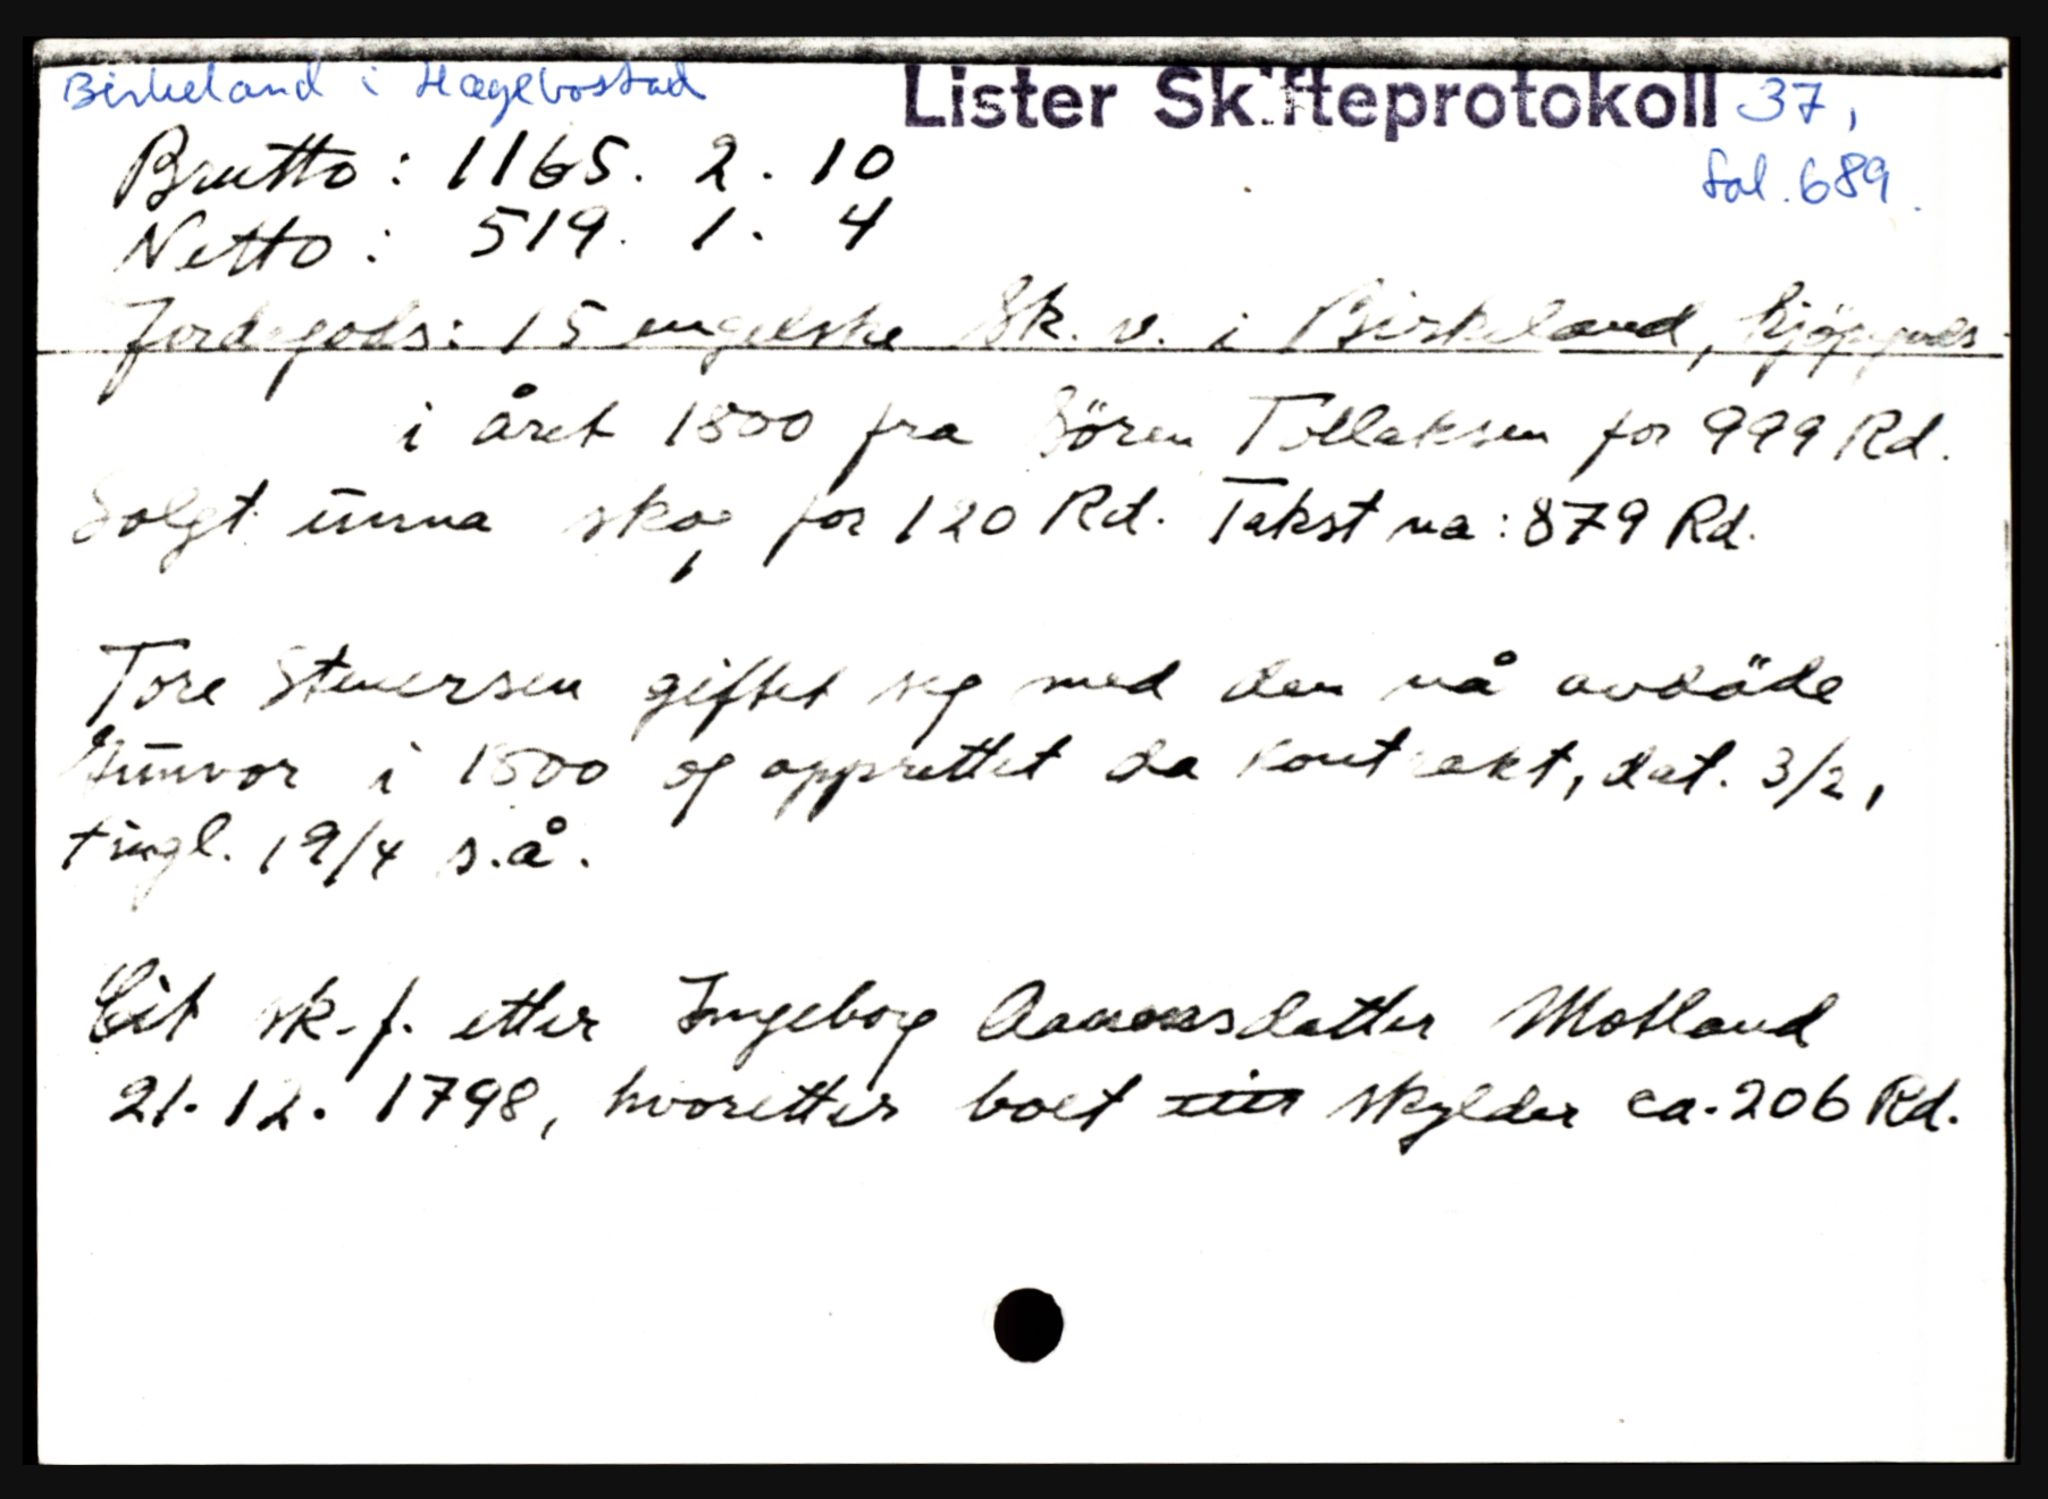 Birkeland i Hægebostad Lister Skifteprotokoll 37,
fol. 689.
Brutto: 1165. 2. 10
Netto: 519. 1. 4
Jordegods: 15 engelske Sk. v. i Birkeland, kjöpt
i året 1800 fra Sören Tollaksen for 999 Rd.
Solgt unna skog for 120 Rd. Takst na: 879 Rd.
Tore giftet seg med den nå avdöde
Gunvor i 1800 og opprettet da kontrakt, dat. 3/2,
tingl. 19/4 s.å.
Cit sk.f. etter Ingeborg Aanensdatter Motland
21. 12. 1798, hvoretter boet skylder ca. 206 Rd.